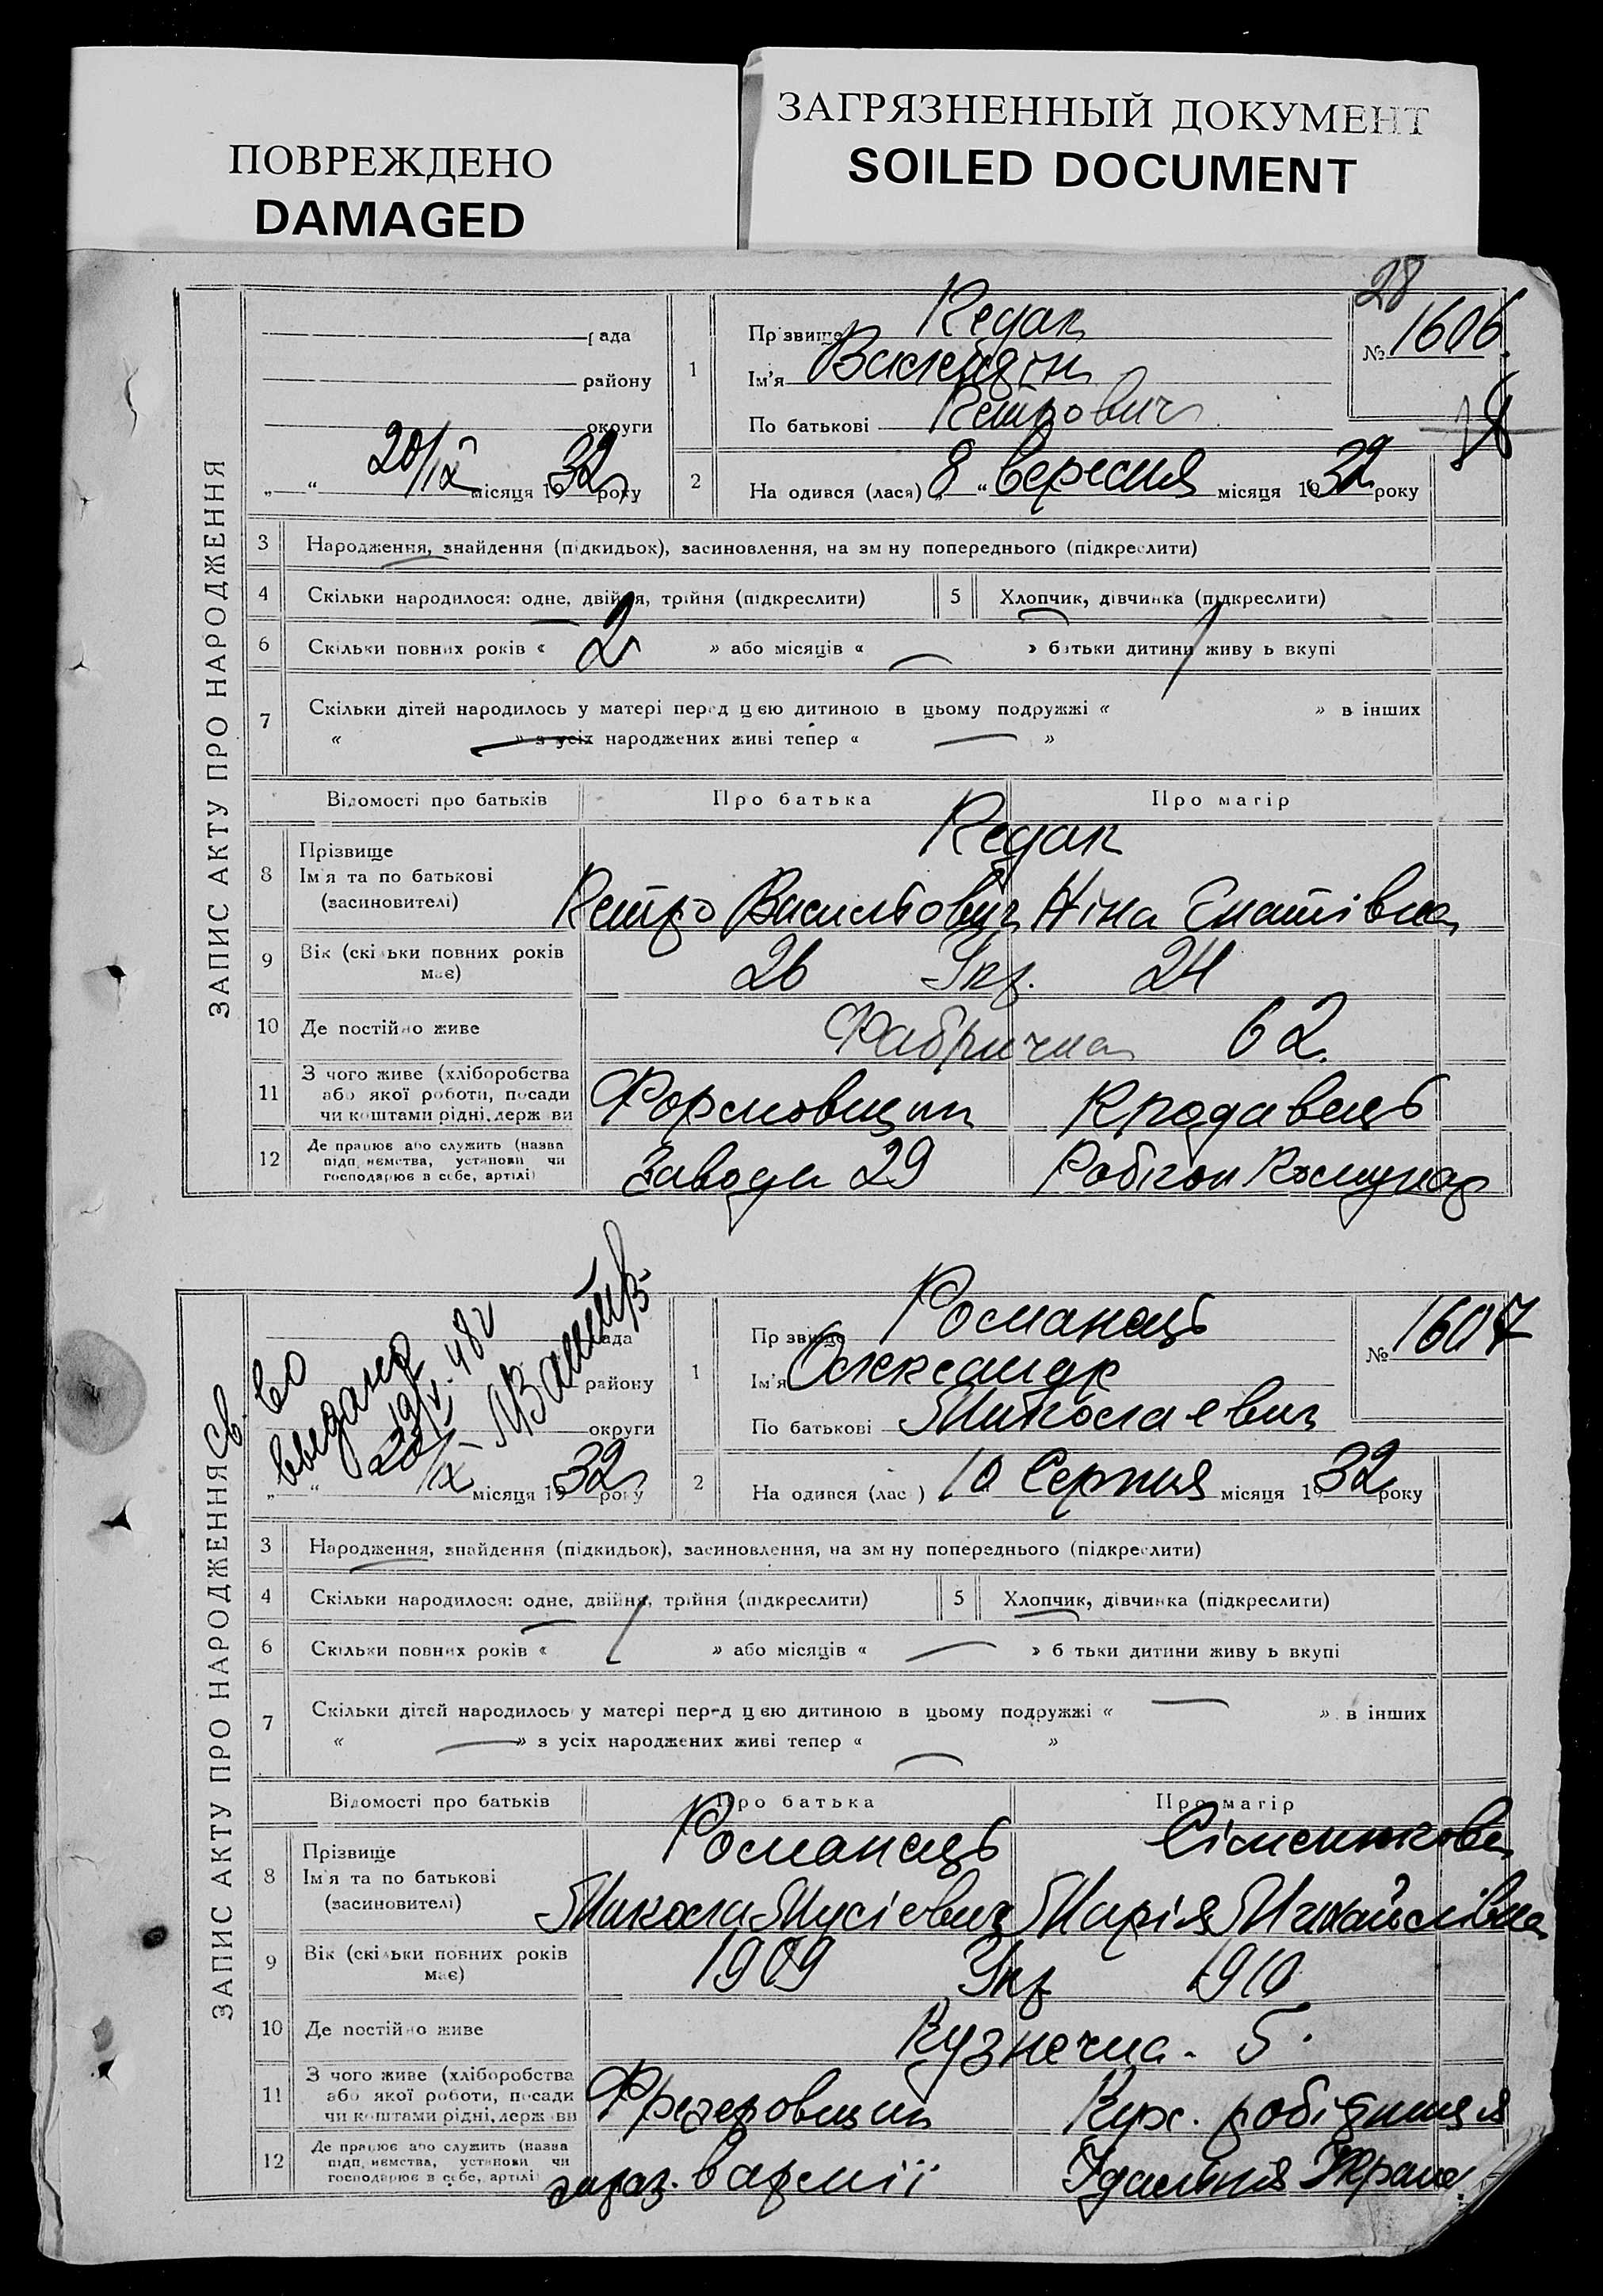 ПОВРЕЖДЕНО
DAMAGED
ЗАГРЯЗНЕННЫЙ ДОКУМЕНТ
SOILED DOCUMENT
28
ЗАПИС АКТУ ПРО НАРОДЖЕННЯ
рада
району
округи
20/IX місяця 1932 року
1
Пр звище Редак
Ім'я
По батькові Петрович
№ 1606
18
2
На одився (лася) „8“ вересня місяця 1932 року
3 Народження, знайдення (підкидьок), засиновлення, на зм ну попереднього (підкреслити)
4 Скільки народилося: одне, двійня, трійня (підкреслити)
5 Хлопчик, дівчинка (підкреслити)
6 Скільки повних років « 2 » або місяців « » батьки дитини живу ь вкупі
7 Скільки дітей народилось у матері перед цею дитиною в цьому подружжі « » в інших
« » з усіх народжених живі тепер « »
Відомості про батьків Про батька Про матір
8 Прізвище
Ім'я та по батькові
(засиновителі)
Редак
Петро Васильович Ніна
9 Вік (скі ьки повних років має) 26 Укр. 24
10 Де постійно живе Фабрична 62.
11 З чого живе (хліборобства
або якої роботи, посади
чи коштами рідні, держ ви
Формовщик Продавець
12 Де працює або служить (назва
підп иємства, установи чи
господарює в себе, артілі)
Завода 29 Робкоп Комунар
ЗАПИС АКТУ ПРО НАРОДЖЕННЯ
Св-во
выдано
19/V-48г
рада
району
округи
20/IX місяця 1932 року
1
Пр звище Романець
Ім'я Олександр
По батькові Миколаевич
№ 1607
2
На одився (лас ) 10 Серпня місяця 1932 року
3 Народження, знайдення (підкидьок), засиновлення, на зм ну попереднього (підкреслити)
4 Скільки народилося: одне, двійня, трійня (підкреслити)
5 Хлопчик, дівчинка (підкреслити)
6 Скільки повних років « » або місяців « » б тьки дитини живу ь вкупі
7 Скільки дітей народилось у матері перед цею дитиною в цьому подружжі « » в інших
« » з усіх народжених живі тепер « »
Відомості про батьків Про батька Про матір
8 Прізвище
Ім'я та по батькові
(засиновителі)
Романець Сіменюкова
Микола Мусієвич Марія Михайлівна
9 Вік (скільки повних років має) 1909 Укр 1910
10 Де постійно живе Кузнечна - 5.
11 З чого живе (хліборобства
або якої роботи, посади
чи коштами рідні, держ ви
Фрезеровщик Кух. робітниця
12 Де працює або служить (назва
підп иємства, установи чи
господарює в себе, артілі
зараз. в армії Їдальня